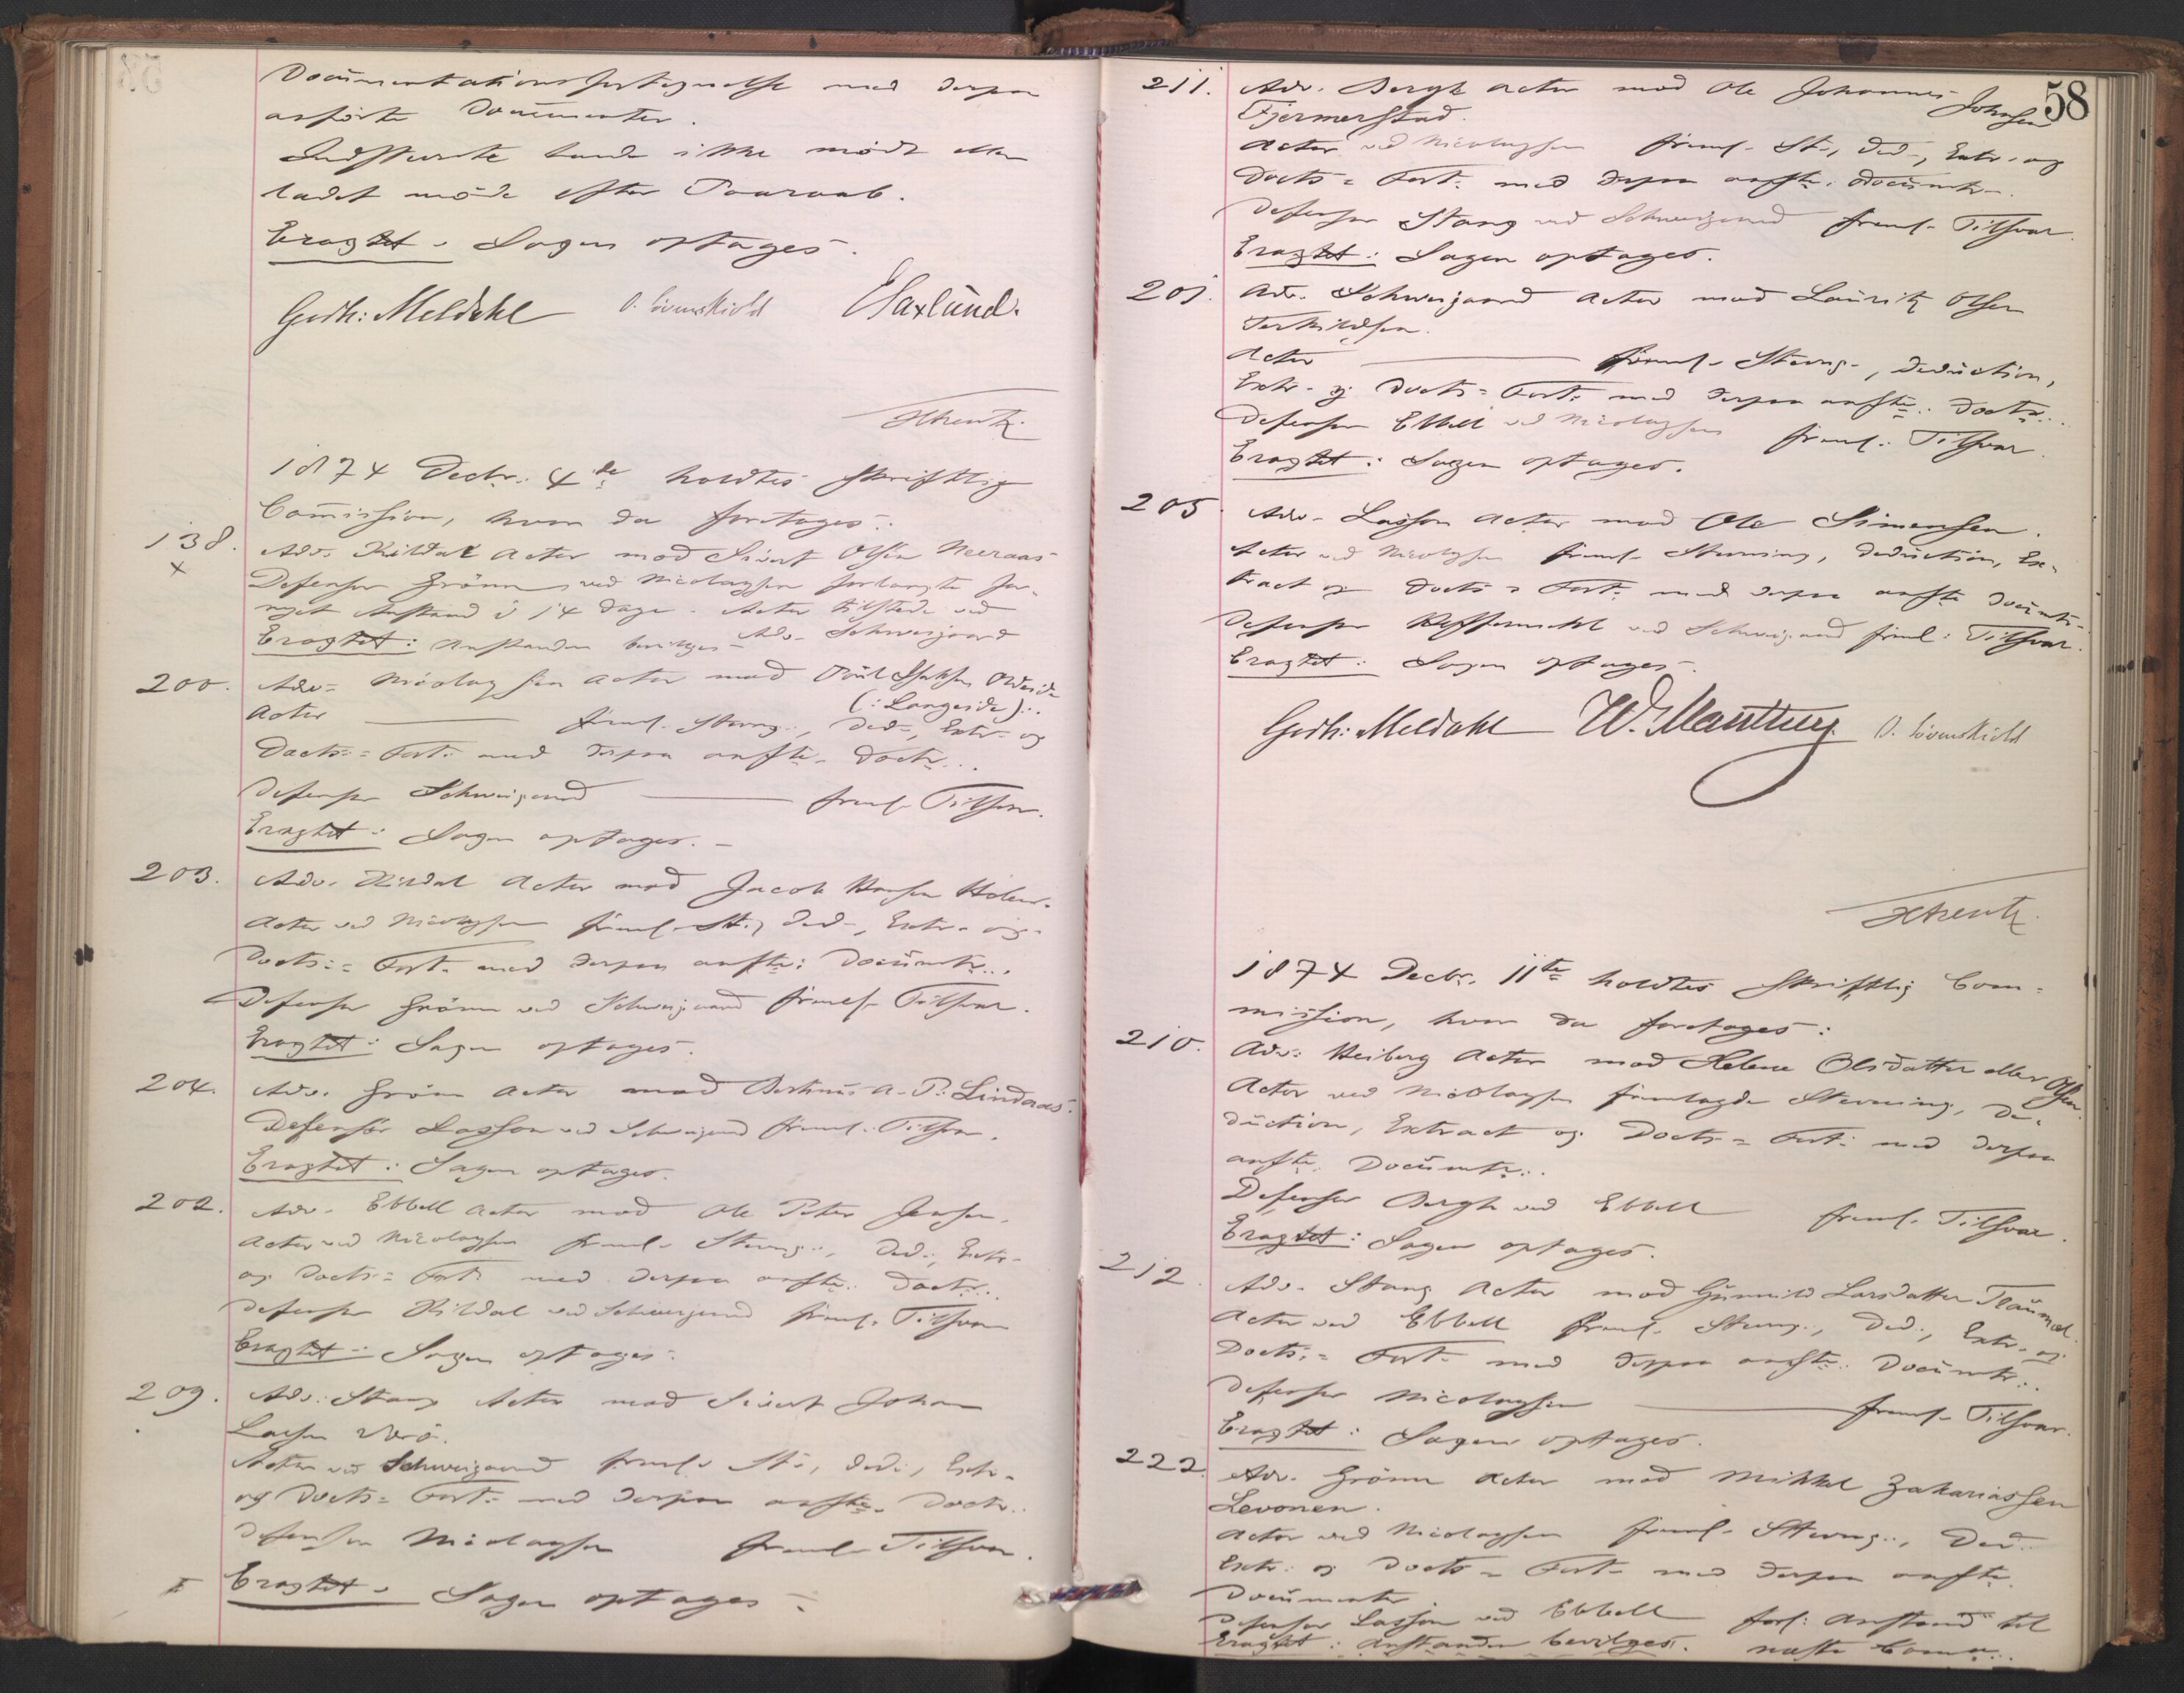 Documentationsfortegnelse med derpaa
anførte Documenter.
Indstevnte havde ikke mødt eller
ladet møde efter Paaraab.
Eragtet: Sagen optages.
Gerh: Meldahl O. Løvenskiold E Saxlund.
1874 Decbr. 4de holdtes skriftlig
Commission, hvor da foretoges:
138. Adv. Kildal Actor mod Sivert Olsen Neeraas
x
Defensor Grönn ved Nicolaysen forlangte for-
nyet Anstand i 14 Dage. Actor tilstede ved
Adv. Schweigaard
Eragtet: Anstanden bevilges
200. Adv. Nicolaysen Actor mod Poul
(: Langeide):
Actor — freml. Stevng., Ded., Extr. og
Docts.= Fort. med derpaa anfte. Doctr.
Defensor Schweigaard — freml. Tilsvar.
Eragtet: Sagen optages.
203. Adv. Kildal Actor mod Jacob Hansen
Actor ved Nicolaysen freml. St., Ded., Extr. og
Docts.= Fort. med derpaa anfte. Documtr.
Defensor Grönn ved Schweigaard freml. Tilsvar.
Eragtet: Sagen optages.
204. Adv. Grönn Actor mod A. P. Lindaas.
Defensor Lasson ved Schweigaard freml. Tilsvar.
Eragtet: Sagen optages.
202. Adv. Ebbell Actor mod Ole Peter Jensen.
Actor ved Nicolaysen freml. Stevng., Ded., Extr.
og Docts.= Fort. med derpaa anfte. Doctr.
Defensor Kildal ved Schweigaard freml. Tilsvar
Eragtet: Sagen optages.
209. Adv. Stang Actor mod Sivert Johan
Larsen
Actor ved Schweigaard freml. St., Ded., Extr.
og Docts.= Fort. med derpaa anfte. Doctr.
Defensor Nicolaysen freml. Tilsvar.
Eragtet: Sagen optages.
58
211. Adv. Bergh Actor mod Ole Johannes Johnsen
Fjermerstad.
Actor ved Nicolaysen freml. St., Ded., Extr. og
Docts.= Fort. med derpaa anfte. Documtr.
Defensor Stang ved Schweigaard freml. Tilsvar.
Eragtet: Sagen optages.
201. Adv. Schweigaard Actor mod Lauritz Olsen
Terkildsen.
Actor — freml. Stevng., Deduction,
Extr. og Docts.= Fort. med derpaa anfte. Doctr.
Defensor Ebbell ved Nicolaysen freml. Tilsvar.
Eragtet: Sagen optages.
205. Adv. Lasson Actor mod Ole Simensen.
Actor ved Nicolaysen freml. Stevning, Deduction, Ex-
tract og Docts.= Fort. med derpaa anfte Documtr.
Defensor ved Schweigaard freml. Tilsvar.
Eragtet: Sagen optages.
Gerh: Meldahl W. Manthey. O. Løvenskiold
1874 Decbr. 11te holdtes skriftlig Com-
mission, hvor da foretoges:
210. Adv. Heiberg Actor mod Helene Olsdatter eller Olsen.
Actor ved Nicolaysen fremlagde Stevning, De-
duction, Extract og Docts.= Fort. med derpaa
anfte. Documtr.
Defensor Bergh ved Ebbell freml. Tilsvar.
Eragtet: Sagen optages.
212. Adv. Stang Actor mod Gunnild Larsdatter
Actor ved Ebbell freml. Stevng., Ded., Extr. og
Docts.= Fort. med derpaa anfte. Documtr.
Defensor Nicolaysen — freml. Tilsvar.
Eragtet: Sagen optages.
222. Adv. Grönn Actor mod Mikkel Zakariassen
Levonen.
Actor ved Nicolaysen freml. Stevng., Ded.
Extr. og Docts.= Fort. med derpaa anfte.
Documenter
Defensor Lasson ved Ebbell forl. Anstand til
næste Comm.
Eragtet: Anstanden bevilges.